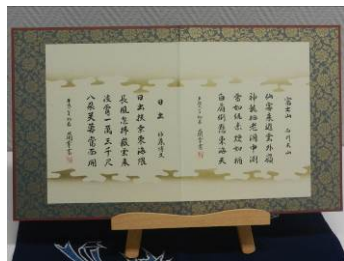 富士山 石川丈山
仙客来遊雲外巓
神龍栖老洞中淵
雪如紈素煙如柄
白扇倒懸東海天
日出
日出扶桑東海隈
長風忽拂嶽雲来
凌霄一萬三千尺
八朶芙蓉當面開